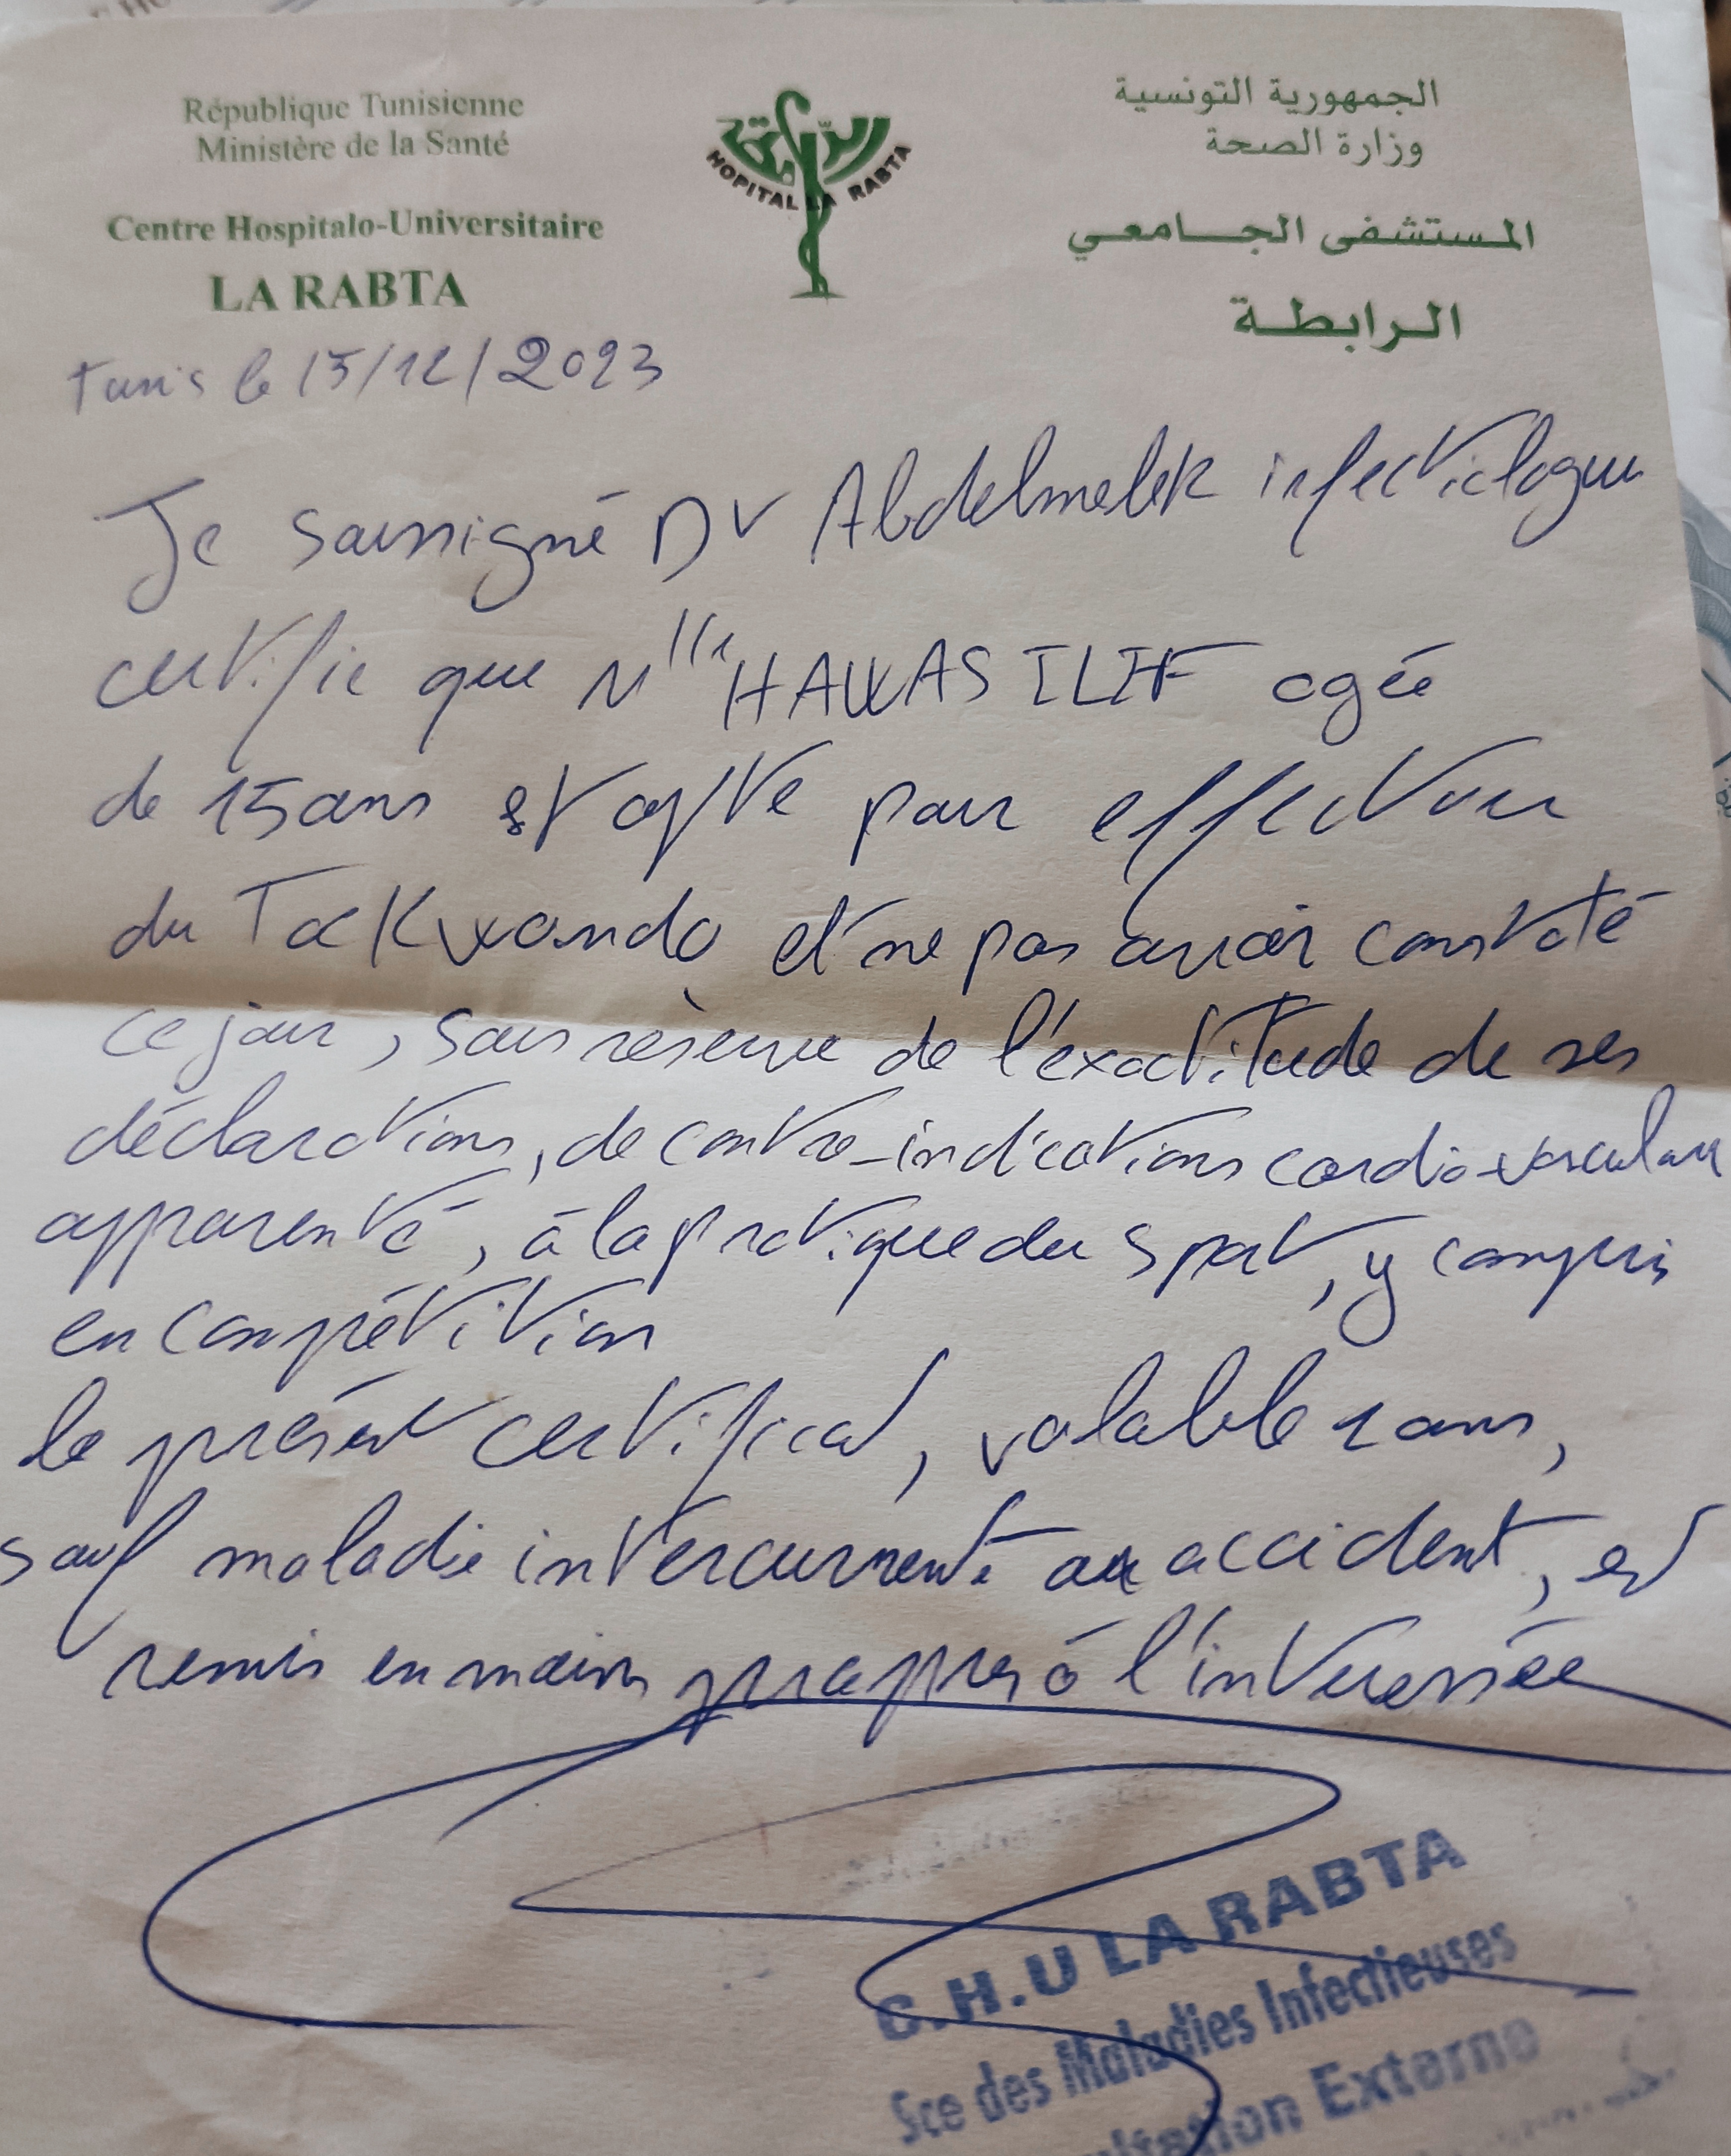 République Tunisienne
Ministère de la Santé
Centre Hospitalo-Universitaire
LA RABTA
الرابطة
HOPITAL LA RABTA
الجمهورية التونسية
وزارة الصحة
المستشفى الجامعي
الرابطة
Tunis le 15/12/2023
Je soussigné Dr Abdelmelek infectiologue
certifie que Mlle HAWAS ILEF agée
de 15 ans est apte pour effectuer
du Taekwondo et ne pas avoir constaté
ce jour, sous réserve de l'exactitude de ses
déclarations, de contre-indications cardio-vasculaire
apparente, à la pratique du sport, y compris
en compétition
le présent certificat, valable 1 ans,
sauf maladie intercurrente ou accident, est
remis en mains propres à l'intéressée
C.H.U LA RABTA
Sce des Maladies Infectieuses
Externe